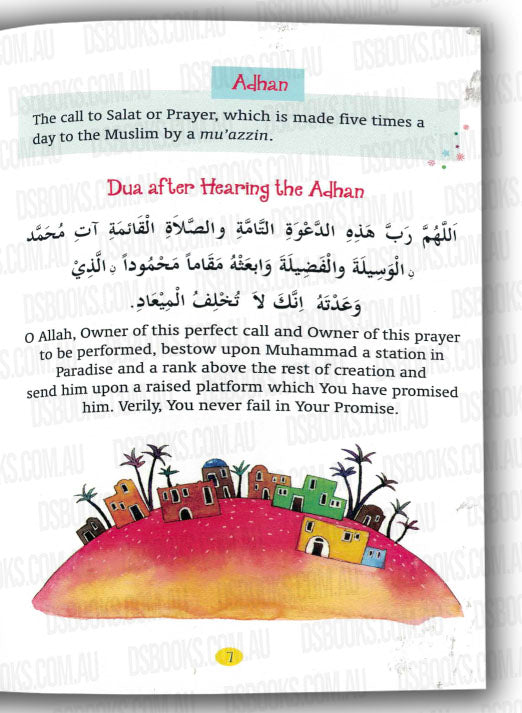 Adhan
The call to Salat or Prayer, which is made five times a
day to the Muslim by a mu'azzin.
Dua after Hearing the Adhan
اَللَّهُمَّ رَبَّ هَذِهِ الدَّعْوَةِ التَّامَّةِ والصَّلاَةِ الْقَائمَةِ آتِ مُحَمَّد
نِ الْوَسِيلَةَ والْفَضِيلَةَ وَابعَثْهُ مَقَاماً مَحْمُوداً نِ الَّذِيْ
وَعَدْتَهُ اِنَّكَ لاَ تُخْلِفُ الْمِيْعَادِ.
O Allah, Owner of this perfect call and Owner of this prayer
to be performed, bestow upon Muhammad a station in
Paradise and a rank above the rest of creation and
send him upon a raised platform which You have promised
him. Verily, You never fail in Your Promise.
7
DSBOOKS.COM.AU